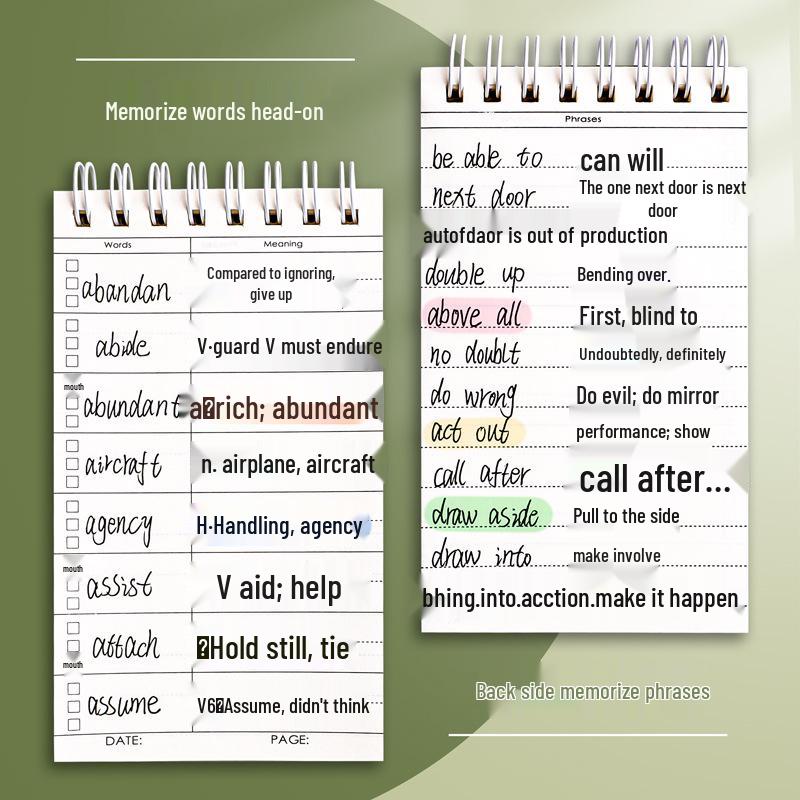 Memorize words head-on
Words Meaning
abandan Compared to ignoring,
give up
abide V·guard V must endure
mouth
abundant a rich; abundant
aircraft n. airplane, aircraft
agency H·Handling, agency
mouth
assist V aid; help
attach Hold still, tie
mouth
assume V6 Assume, didn't think
DATE: PAGE:
Phrases
be able to can will
next door The one next door is next
door
autofdaor is out of production
double up Bending over.
above all First, blind to
no doublt Undoubtedly, definitely
do wrong Do evil; do mirror
act out performance; show
call after call after...
draw aside Pull to the side
draw into make involve
bhing.into.acction.make it happen
Back side memorize phrases